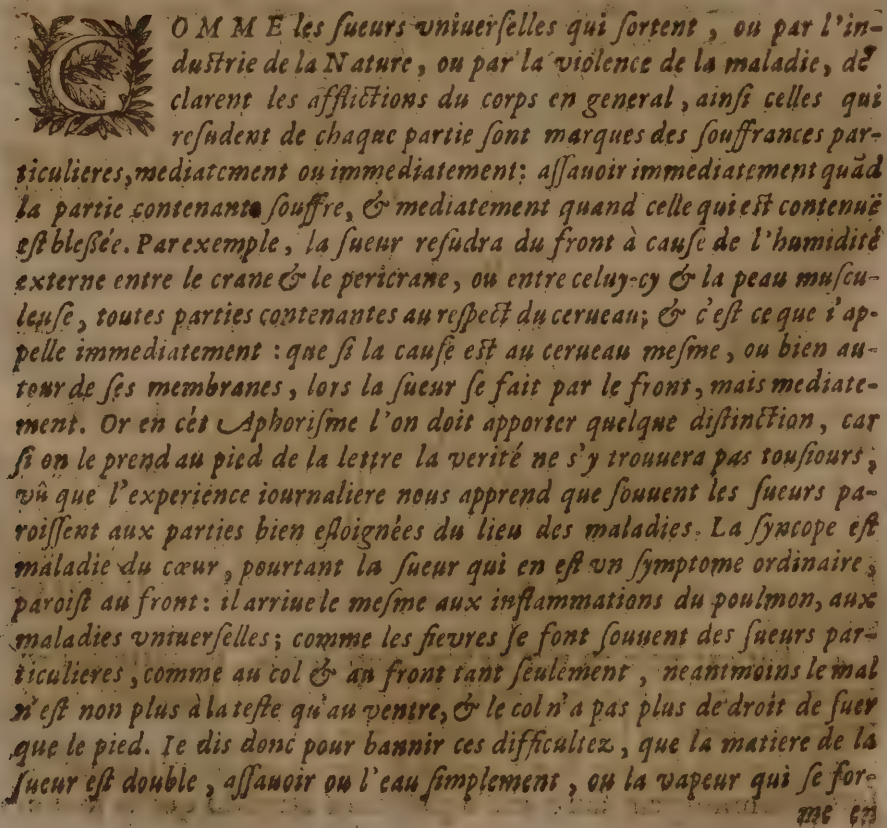 COMME les ſueurs vniuerſelles qui ſortent, ou par l'in-
duſtrie de la Nature, ou par la violence de la maladie, dé
clarent les afflictions du corps en general, ainſi celles qui
reſudent de chaque partie ſont marques des ſouffrances par-
ticulieres, mediatement ou immediatement: aſſauoir immediatement quãd
la partie contenante ſouffre, & mediatement quand celle qui eſt contenuë
eſt bleſſée. Par exemple, la ſueur reſudra du front à cauſe de l'humidité
externe entre le crane & le pericrane, ou entre celuy-cy & la peau muſcu-
leuſe, toutes parties contenantes au reſpect du cerueau; & c'eſt ce que i'ap-
pelle immediatement: que ſi la cauſe eſt au cerueau meſme, ou bien au-
tour de ſes membranes, lors la ſueur ſe fait par le front, mais mediate-
ment. Or en cét Aphoriſme l'on doit apporter quelque diſtinction, car
ſi on le prend au pied de la lettre la verité ne s'y trouuera pas touſiours,
vû que l'experience iournaliere nous apprend que ſouuent les ſueurs pa-
roiſſent aux parties bien eſloignées du lieu des maladies. La ſyncope eſt
maladie du cœur, pourtant la ſueur qui en eſt vn ſymptome ordinaire,
paroiſt au front: il arriue le meſme aux inflammations du poulmon, aux
maladies vniuerſelles; comme les fievres ſe font ſouuent des ſueurs par-
ticulieres, comme au col & au front tant ſeulement, neantmoins le mal
n'eſt non plus à la teſte qu'au ventre, & le col n'a pas plus de droit de ſuer
que le pied. Ie dis donc pour bannir ces difficultez, que la matiere de la
ſueur eſt double, aſſauoir ou l'eau ſimplement, ou la vapeur qui ſe for-
me en